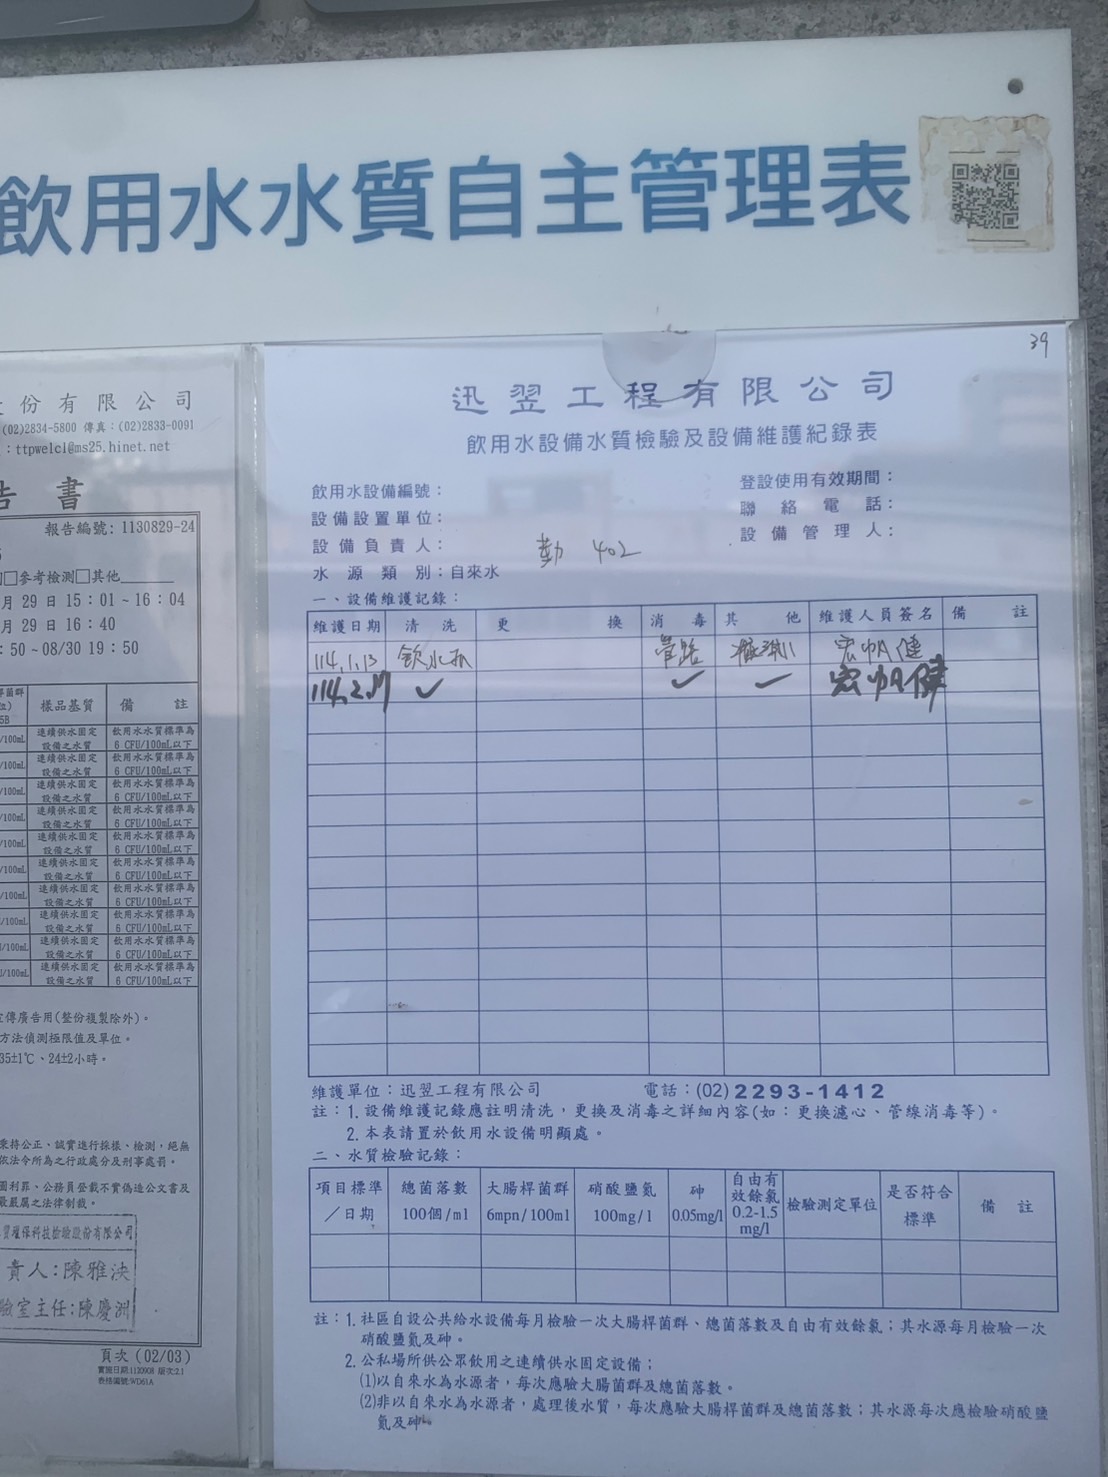 飲用水水質自主管理表
份有限公司
(02)2834-5800 傳真：(02)2833-0091
：ttpwelcl@ms25.hinet.net
告書
報告編號: 1130829-24
□參考檢測□其他
月 29 日 15：01 ~ 16：04
月 29 日 16：40
：50 ~ 08/30 19：50
樣品基質 備註
/100mL 連續供水固定設備之水質 飲用水水質標準為 6 CFU/100mL以下
/100mL 連續供水固定設備之水質 飲用水水質標準為 6 CFU/100mL以下
/100mL 連續供水固定設備之水質 飲用水水質標準為 6 CFU/100mL以下
/100mL 連續供水固定設備之水質 飲用水水質標準為 6 CFU/100mL以下
/100mL 連續供水固定設備之水質 飲用水水質標準為 6 CFU/100mL以下
/100mL 連續供水固定設備之水質 飲用水水質標準為 6 CFU/100mL以下
/100mL 連續供水固定設備之水質 飲用水水質標準為 6 CFU/100mL以下
/100mL 連續供水固定設備之水質 飲用水水質標準為 6 CFU/100mL以下
/100mL 連續供水固定設備之水質 飲用水水質標準為 6 CFU/100mL以下
/100mL 連續供水固定設備之水質 飲用水水質標準為 6 CFU/100mL以下
傳廣告用(整份複製除外)。
方法偵測極限值及單位。
35±1℃、24±2小時。
秉持公正、誠實進行採樣、檢測，絕無
依法令所為之行政處分及刑事處罰。
圖利罪、公務員登載不實偽造公文書及
最嚴厲之法律制裁。
環保科技檢驗股份有限公司
責人:陳雅泱
驗室主任:陳慶洲
頁次 (02/03)
實施日期:1120908 版次:2.1
表格編號:WD61A
39
迅翌工程有限公司
飲用水設備水質檢驗及設備維護紀錄表
飲用水設備編號：
登設使用有效期間：
設備設置單位：
聯絡電話：
設備負責人：
勤 402
設備管理人：
水源類別：自來水
一、設備維護記錄：
維護日期 清洗 更換 消毒 其他 維護人員簽名 備註
114.1.13 管路
114.2.17 ✓ ✓ ✓
維護單位：迅翌工程有限公司 電話：(02)2293-1412
註：1. 設備維護記錄應註明清洗，更換及消毒之詳細內容(如：更換濾心、管線消毒等)。
2. 本表請置於飲用水設備明顯處。
二、水質檢驗記錄：
項目標準／日期 總菌落數 100個/ml 大腸桿菌群 6mpn/100ml 硝酸鹽氮 100mg/l 砷 0.05mg/l 自由有效餘氯 0.2-1.5 mg/l 檢驗測定單位 是否符合標準 備註
註：1. 社區自設公共給水設備每月檢驗一次大腸桿菌群、總菌落數及自由有效餘氯；其水源每月檢驗一次
硝酸鹽氮及砷。
2. 公私場所供公眾飲用之連續供水固定設備；
(1)以自來水為水源者，每次應驗大腸菌群及總菌落數。
(2)非以自來水為水源者，處理後水質，每次應驗大腸桿菌群及總菌落數；其水源每次應檢驗硝酸鹽
氮及砷。